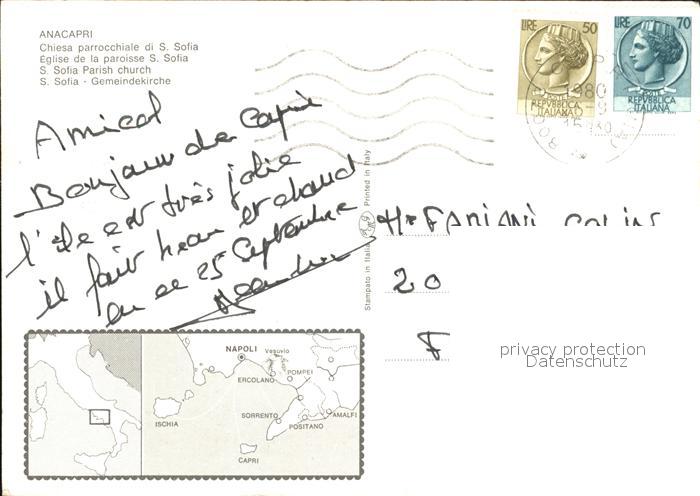 ANACAPRI
Chiesa parrocchiale di S. Sofia
Église de la paroisse S. Sofia
S. Sofia Parish church
S. Sofia - Gemeindekirche
LIRE 50
REPVBBLICA
ITALIANA
LIRE 70
REPVBBLICA
ITALIANA
1980
Amical
Bonjour de Capri
l'île est très jolie
il fait beau et chaud
en ce 25 Septembre
Stampato in Italia
Printed in Italy
FABIANI
20
F
privacy protection
Datenschutz
NAPOLI
Vesuvio
ERCOLANO
POMPEI
ISCHIA
SORRENTO
AMALFI
POSITANO
CAPRI